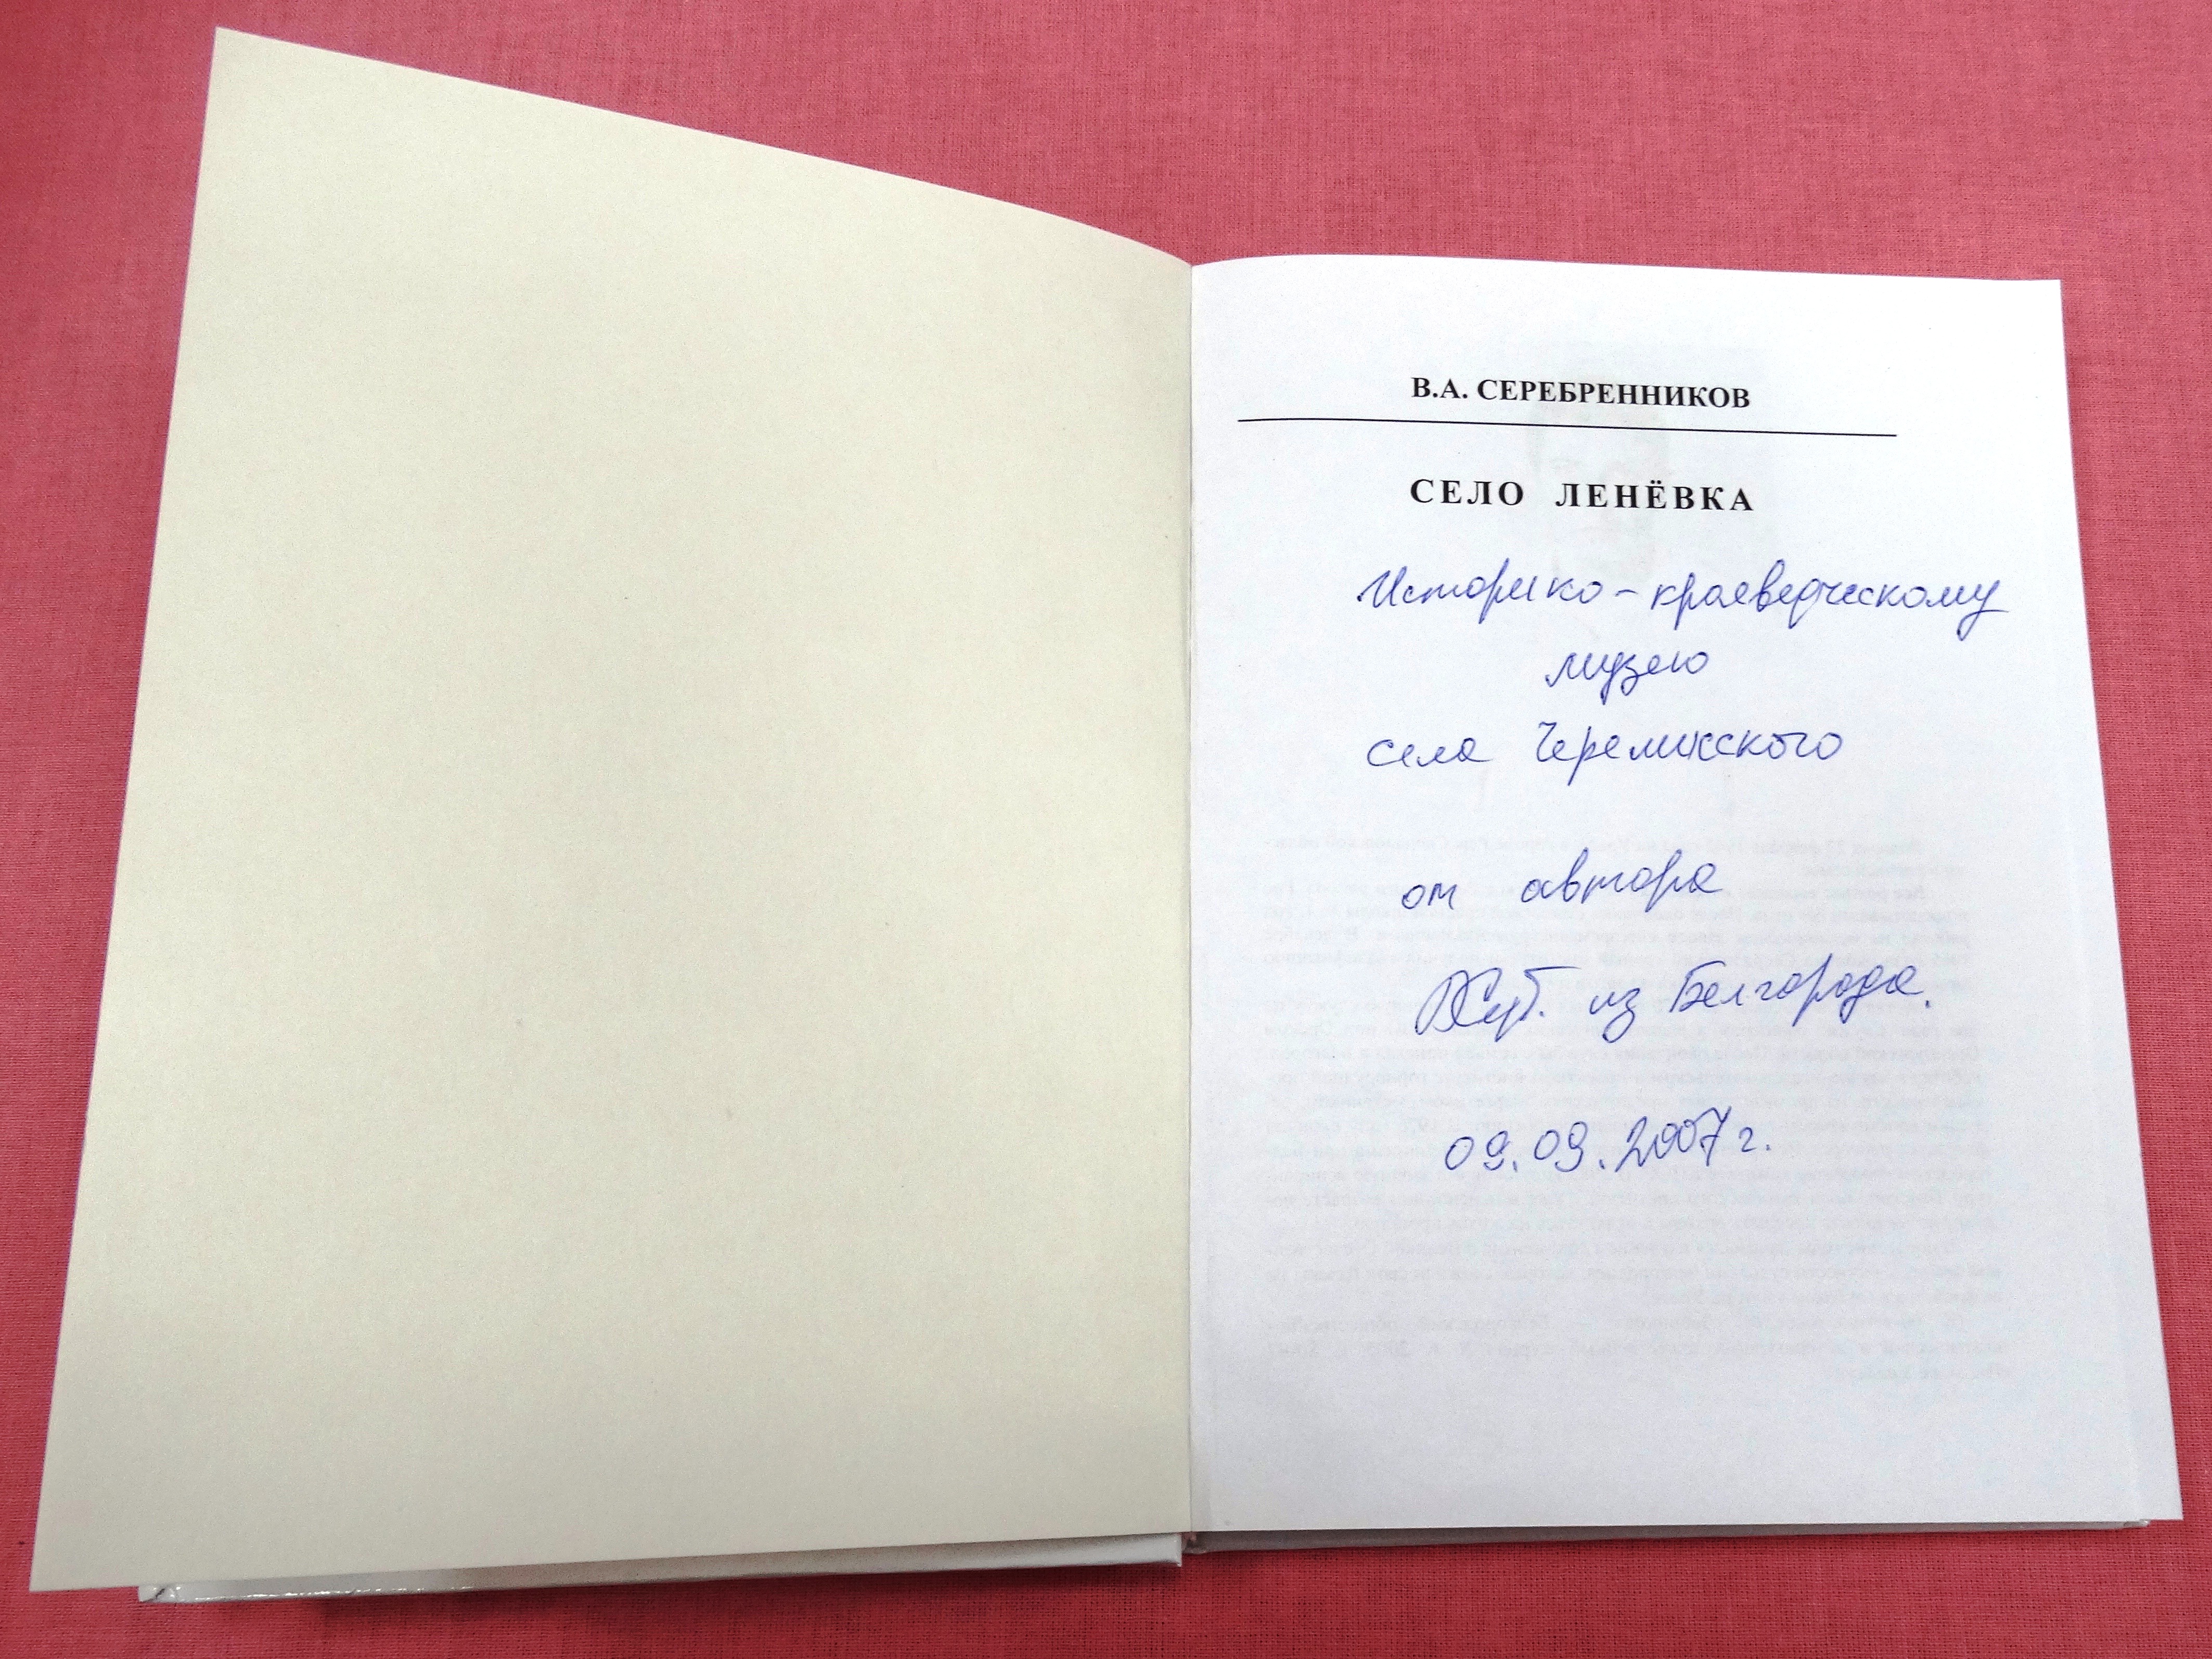 В.А. СЕРЕБРЕННИКОВ
СЕЛО ЛЕНЁВКА
Историко-краеведческому
музею
села Черемисского
от автора
из Белгорода.
09.09.2007 г.